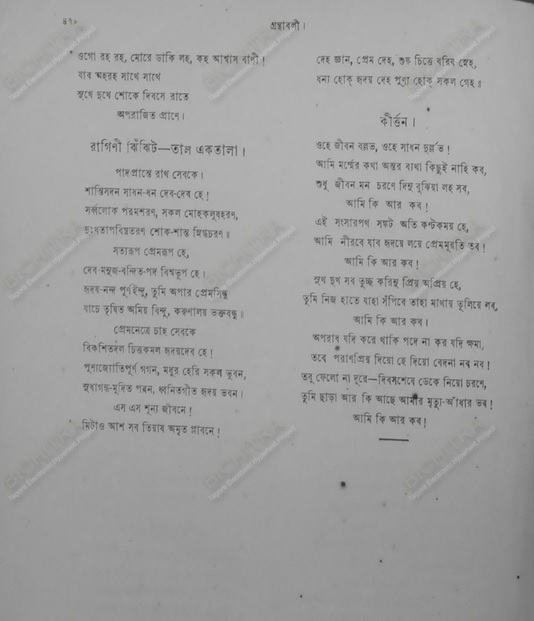 ৪৭০
গ্রন্থাবলী।
ওগো রহ রহ, মোরে ডাকি লহ, কহ আশ্বাস বাণী!
যাব অহরহ সাথে সাথে
সুখে দুখে শোকে দিবসে রাতে
অপরাজিত প্রাণে।
রাগিণী ঝিঁঝিট—তাল একতালা।
পাদপ্রান্তে রাখ সেবকে।
শান্তিসদন সাধন-ধন দেব-দেব হে!
সর্ব্বলোক পরমশরণ, সকল মোহকলুষহরণ,
দুঃখতাপবিঘ্নতরণ শোক-শান্ত স্নিগ্ধচরণ॥
সত্যরূপ প্রেমরূপ হে,
দেব-মনুজ-বন্দিত-পদ বিশ্বভূপ হে।
হৃদয়-নন্দ পূর্ণইন্দু, তুমি অপার প্রেমসিন্ধু
যাচে তৃষিত অমিয় বিন্দু, করুণালয় ভক্তবন্ধু॥
প্রেমনেত্রে চাহ সেবকে
বিকশিতদল চিত্তকমল হৃদয়দেব হে!
পুণ্যজ্যোতিপূর্ণ গগন, মধুর হেরি সকল ভুবন,
সুধাগন্ধ-মুদিত পবন, ধ্বনিতগীত হৃদয় ভবন।
এস এস শূন্য জীবনে!
মিটাও আশ সব তিয়াষ অমৃত প্লাবনে!
দেহ জ্ঞান, প্রেম দেহ, শুষ্ক চিত্তে বরিষ স্নেহ,
ধন্য হোক্ হৃদয় দেহ পুণ্য হোক্ সকল গেহ॥
কীর্ত্তন।
ওহে জীবন বল্লভ, ওহে সাধন দুর্ল্লভ!
আমি মর্ম্মের কথা অন্তর ব্যথা কিছুই নাহি কব,
শুধু জীবন মন চরণে দিনু বুঝিয়া লহ সব,
আমি কি আর কব!
এই সংসারপথ সঙ্কট অতি কণ্টকময় হে,
আমি নীরবে যাব হৃদয়ে লয়ে প্রেমমূরতি তব!
আমি কি আর কব!
সুখ দুখ সব তুচ্ছ করিনু প্রিয় অপ্রিয় হে,
তুমি নিজ হাতে যাহা সঁপিবে তাহা মাথায় তুলিয়ে লব,
আমি কি আর কব।
অপরাধ যদি করে থাকি পদে না কর যদি ক্ষমা,
তবে পরাণপ্রিয় দিয়ো হে দিয়ো বেদনা নব নব!
তবু ফেলো না দূরে—দিবসশেষে ডেকে নিয়ো চরণে,
তুমি ছাড়া আর কি আছে আমার মৃত্যু-আঁধার ভব!
আমি কি আর কব!
BICHITRA
Tagore Electronic Variorum Project